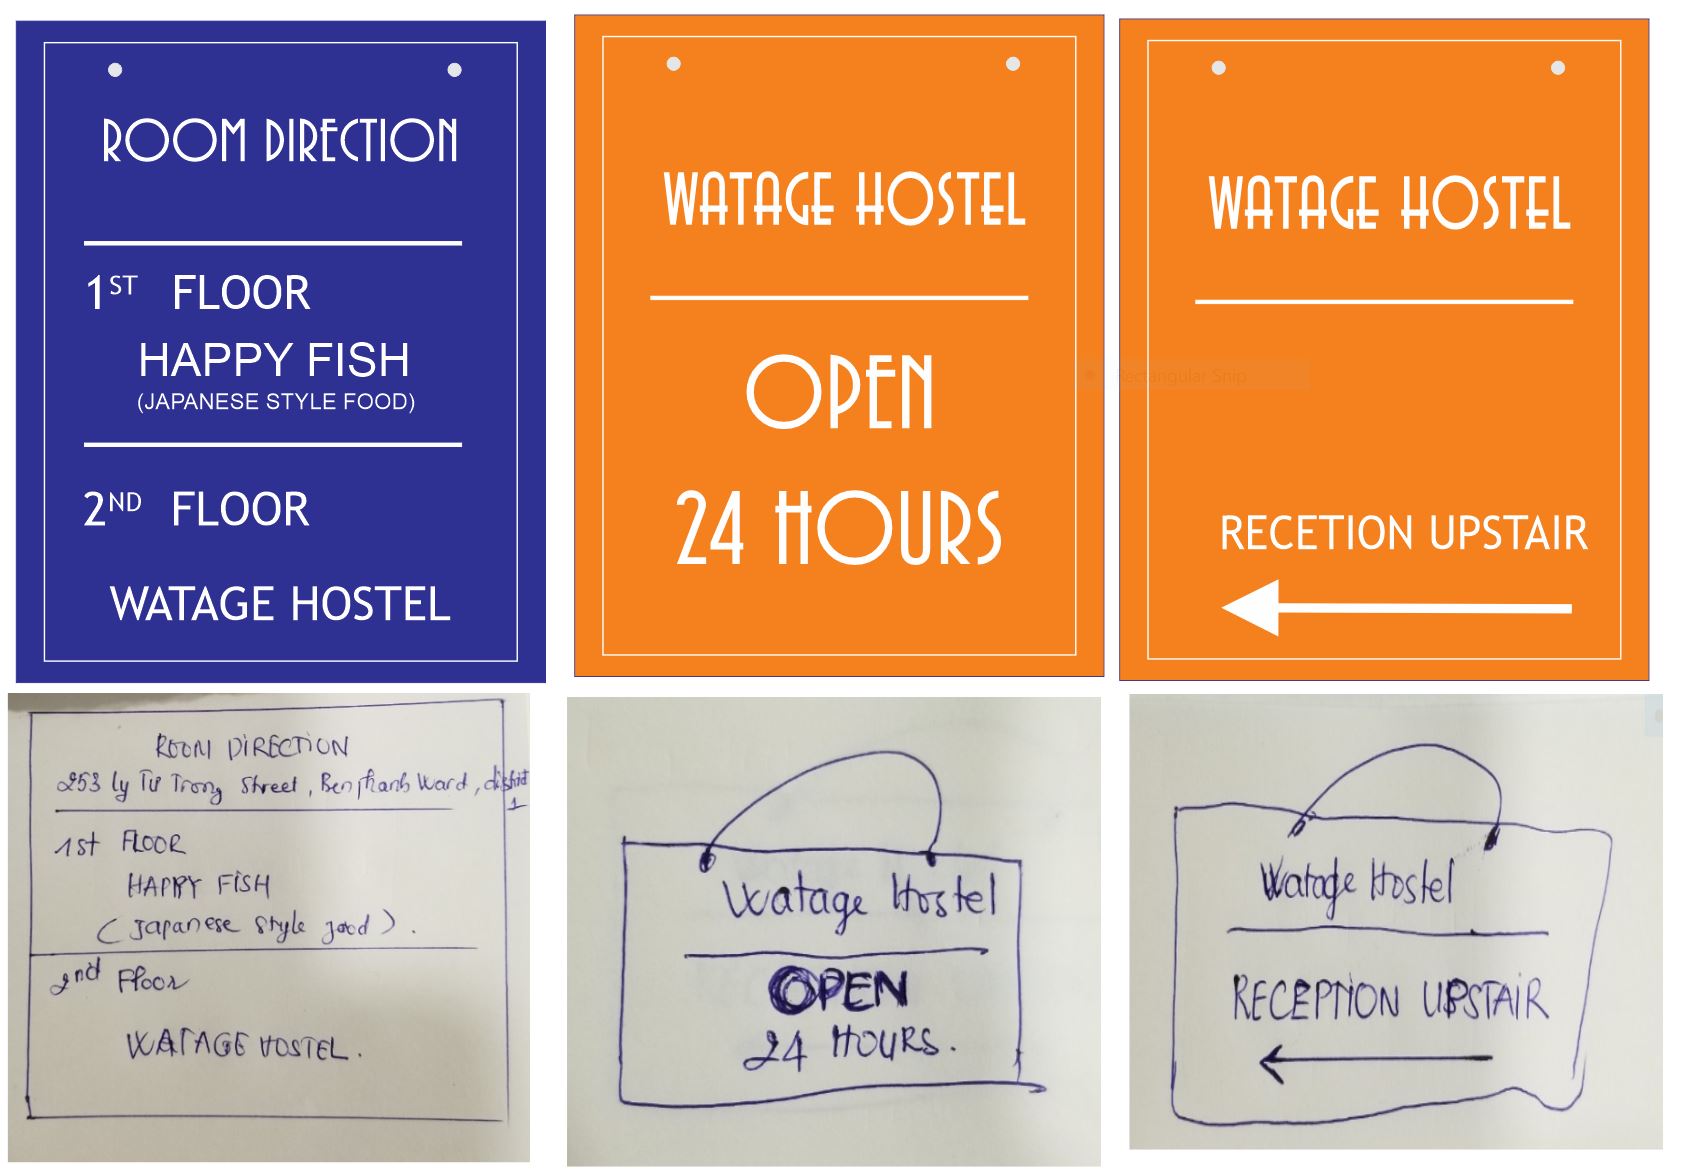 ROOM DIRECTION
1ST FLOOR
HAPPY FISH
(JAPANESE STYLE FOOD)
2ND FLOOR
WATAGE HOSTEL
WATAGE HOSTEL
OPEN
24 HOURS
WATAGE HOSTEL
RECETION UPSTAIR
Rectangular Snip
ROOM DIRECTION
253 Ly Tư Trong Street, Ben thanh Ward, district 1
1st FLOOR
HAPPY FISH
(Japanese style food).
2nd Floor
WATAGE HOSTEL.
Watage Hostel
OPEN
24 HOURS.
Watage Hostel
RECEPTION UPSTAIR